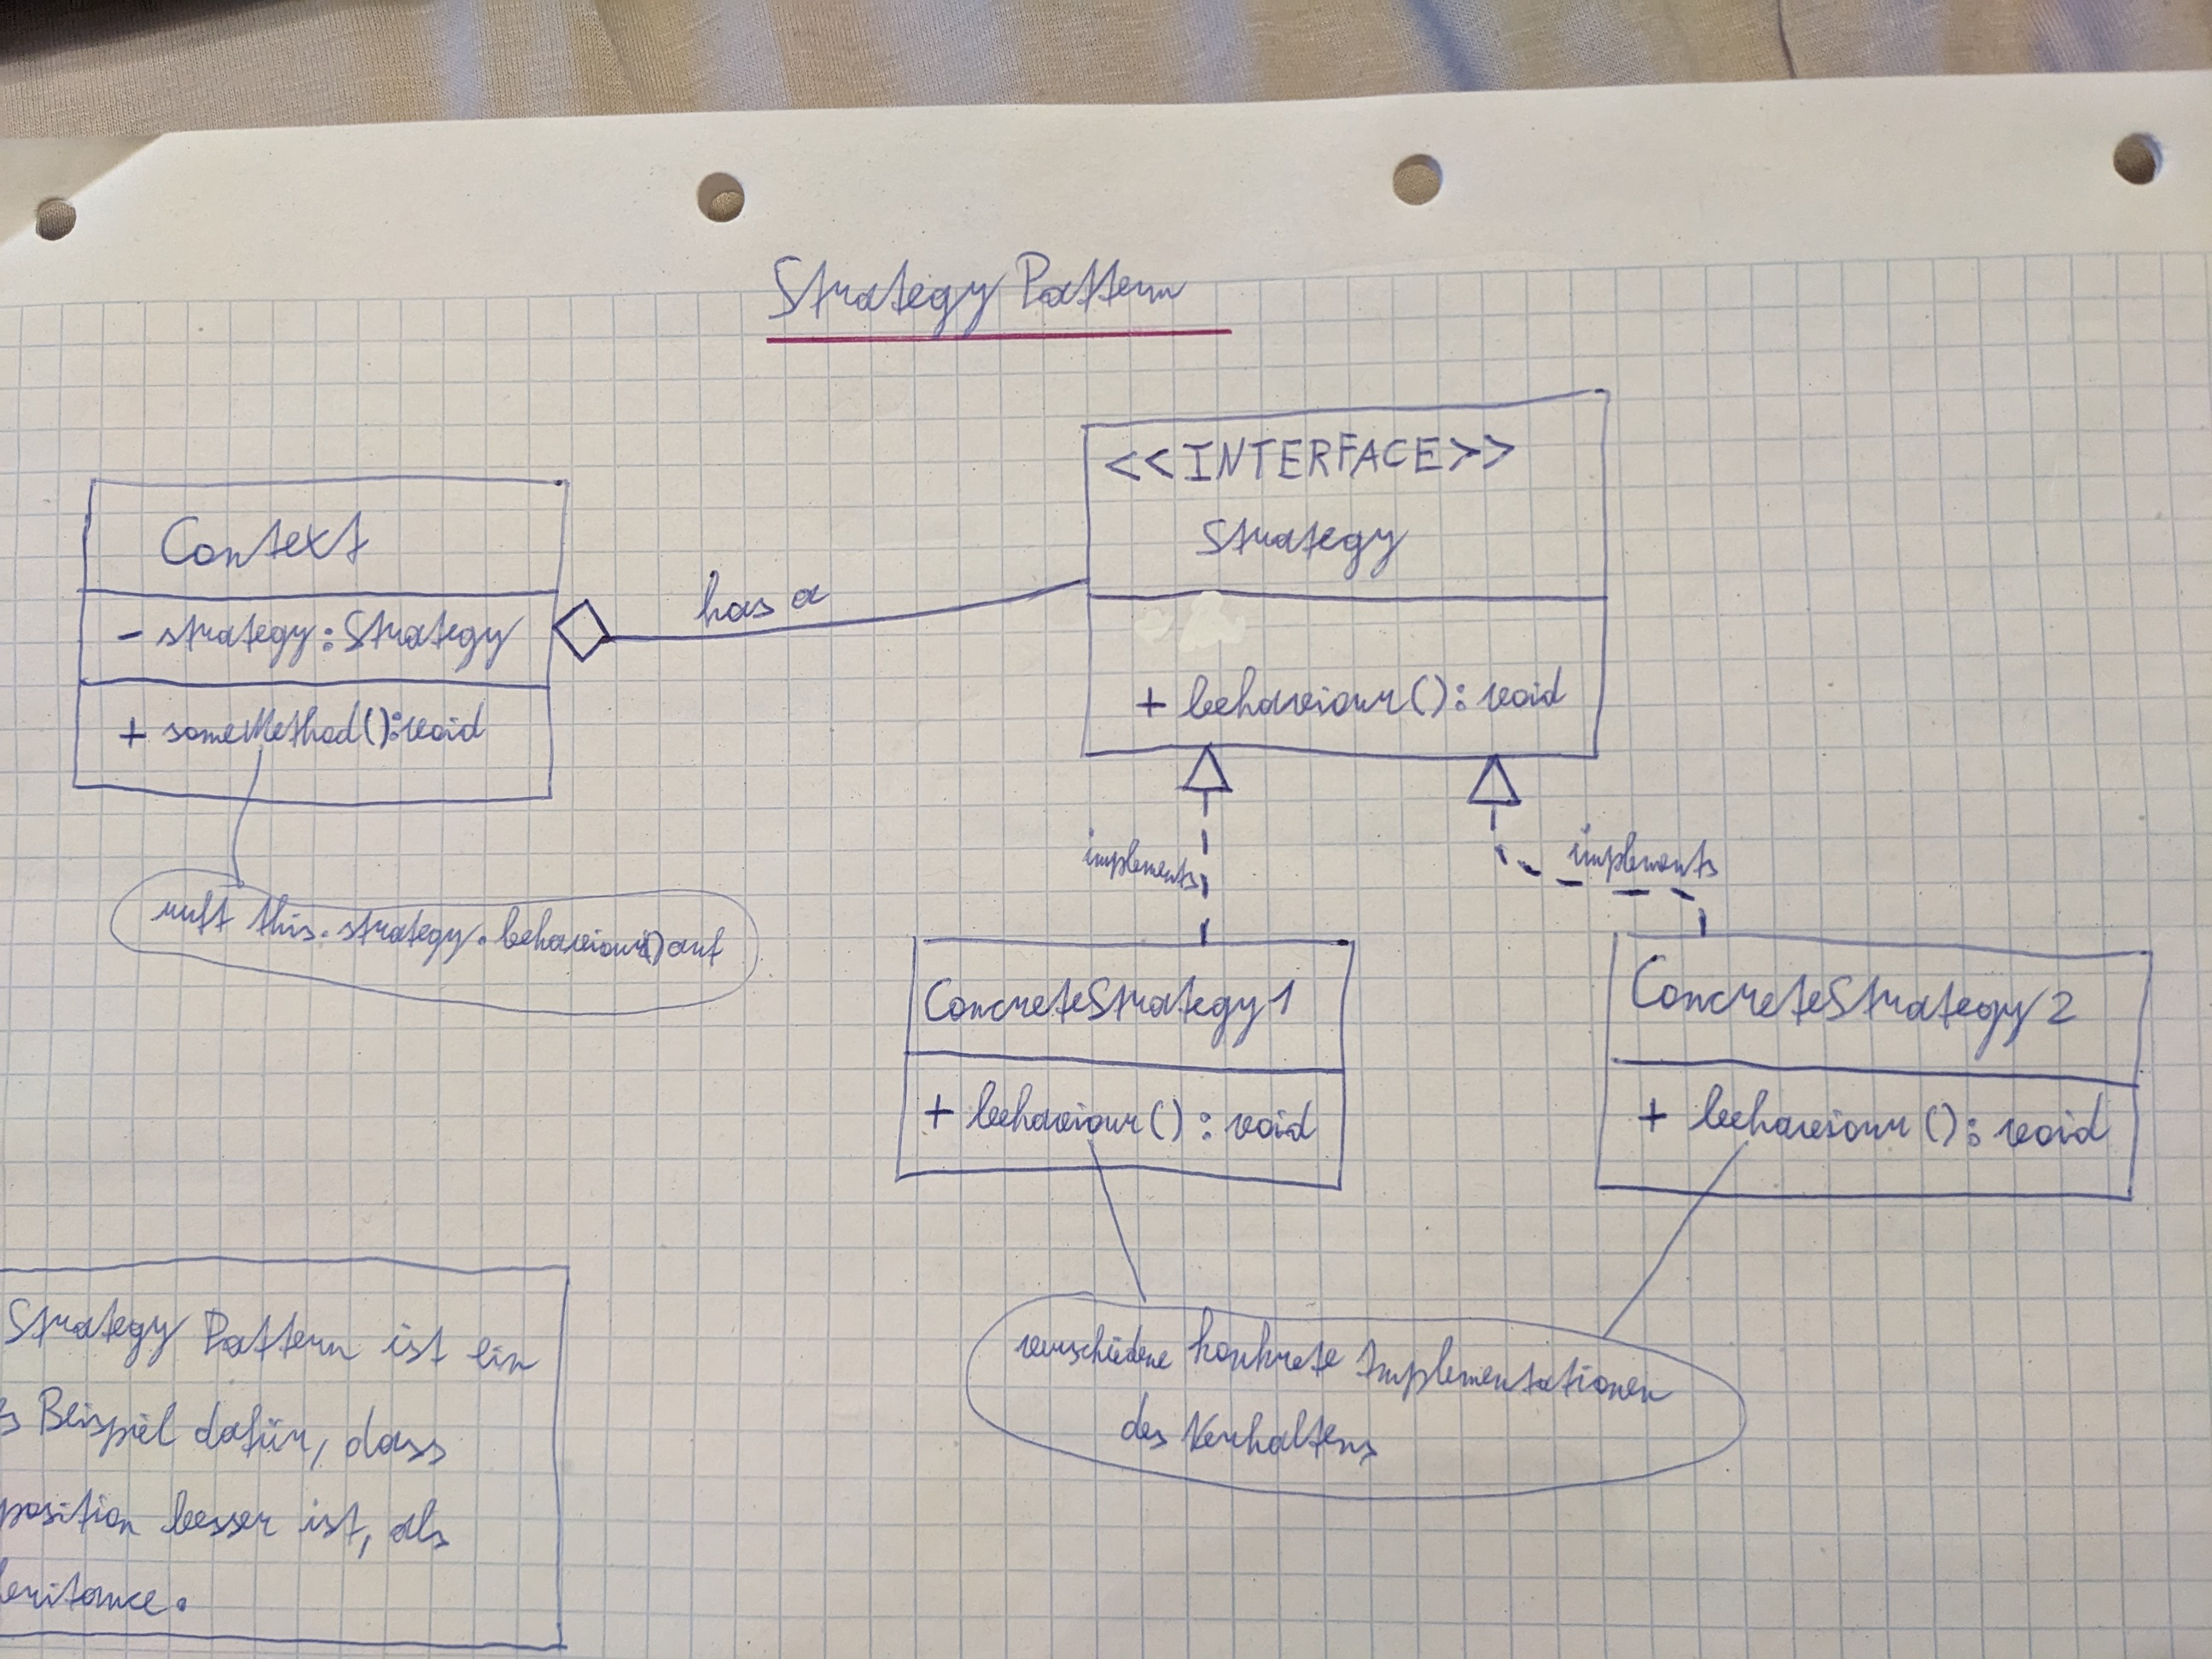 Strategy Pattern
<<INTERFACE>>
Strategy
+ behaviour(): void
Context
- strategy: Strategy
+ someMethod():void
has a
ruft this.strategy.behaviour() auf
implements
implements
ConcreteStrategy1
+ behaviour(): void
ConcreteStrategy2
+ behaviour(): void
verschiedene konkrete Implementationen
des Verhaltens
Strategy Pattern ist ein
Beispiel dafür, dass
position besser ist, als
eritance.